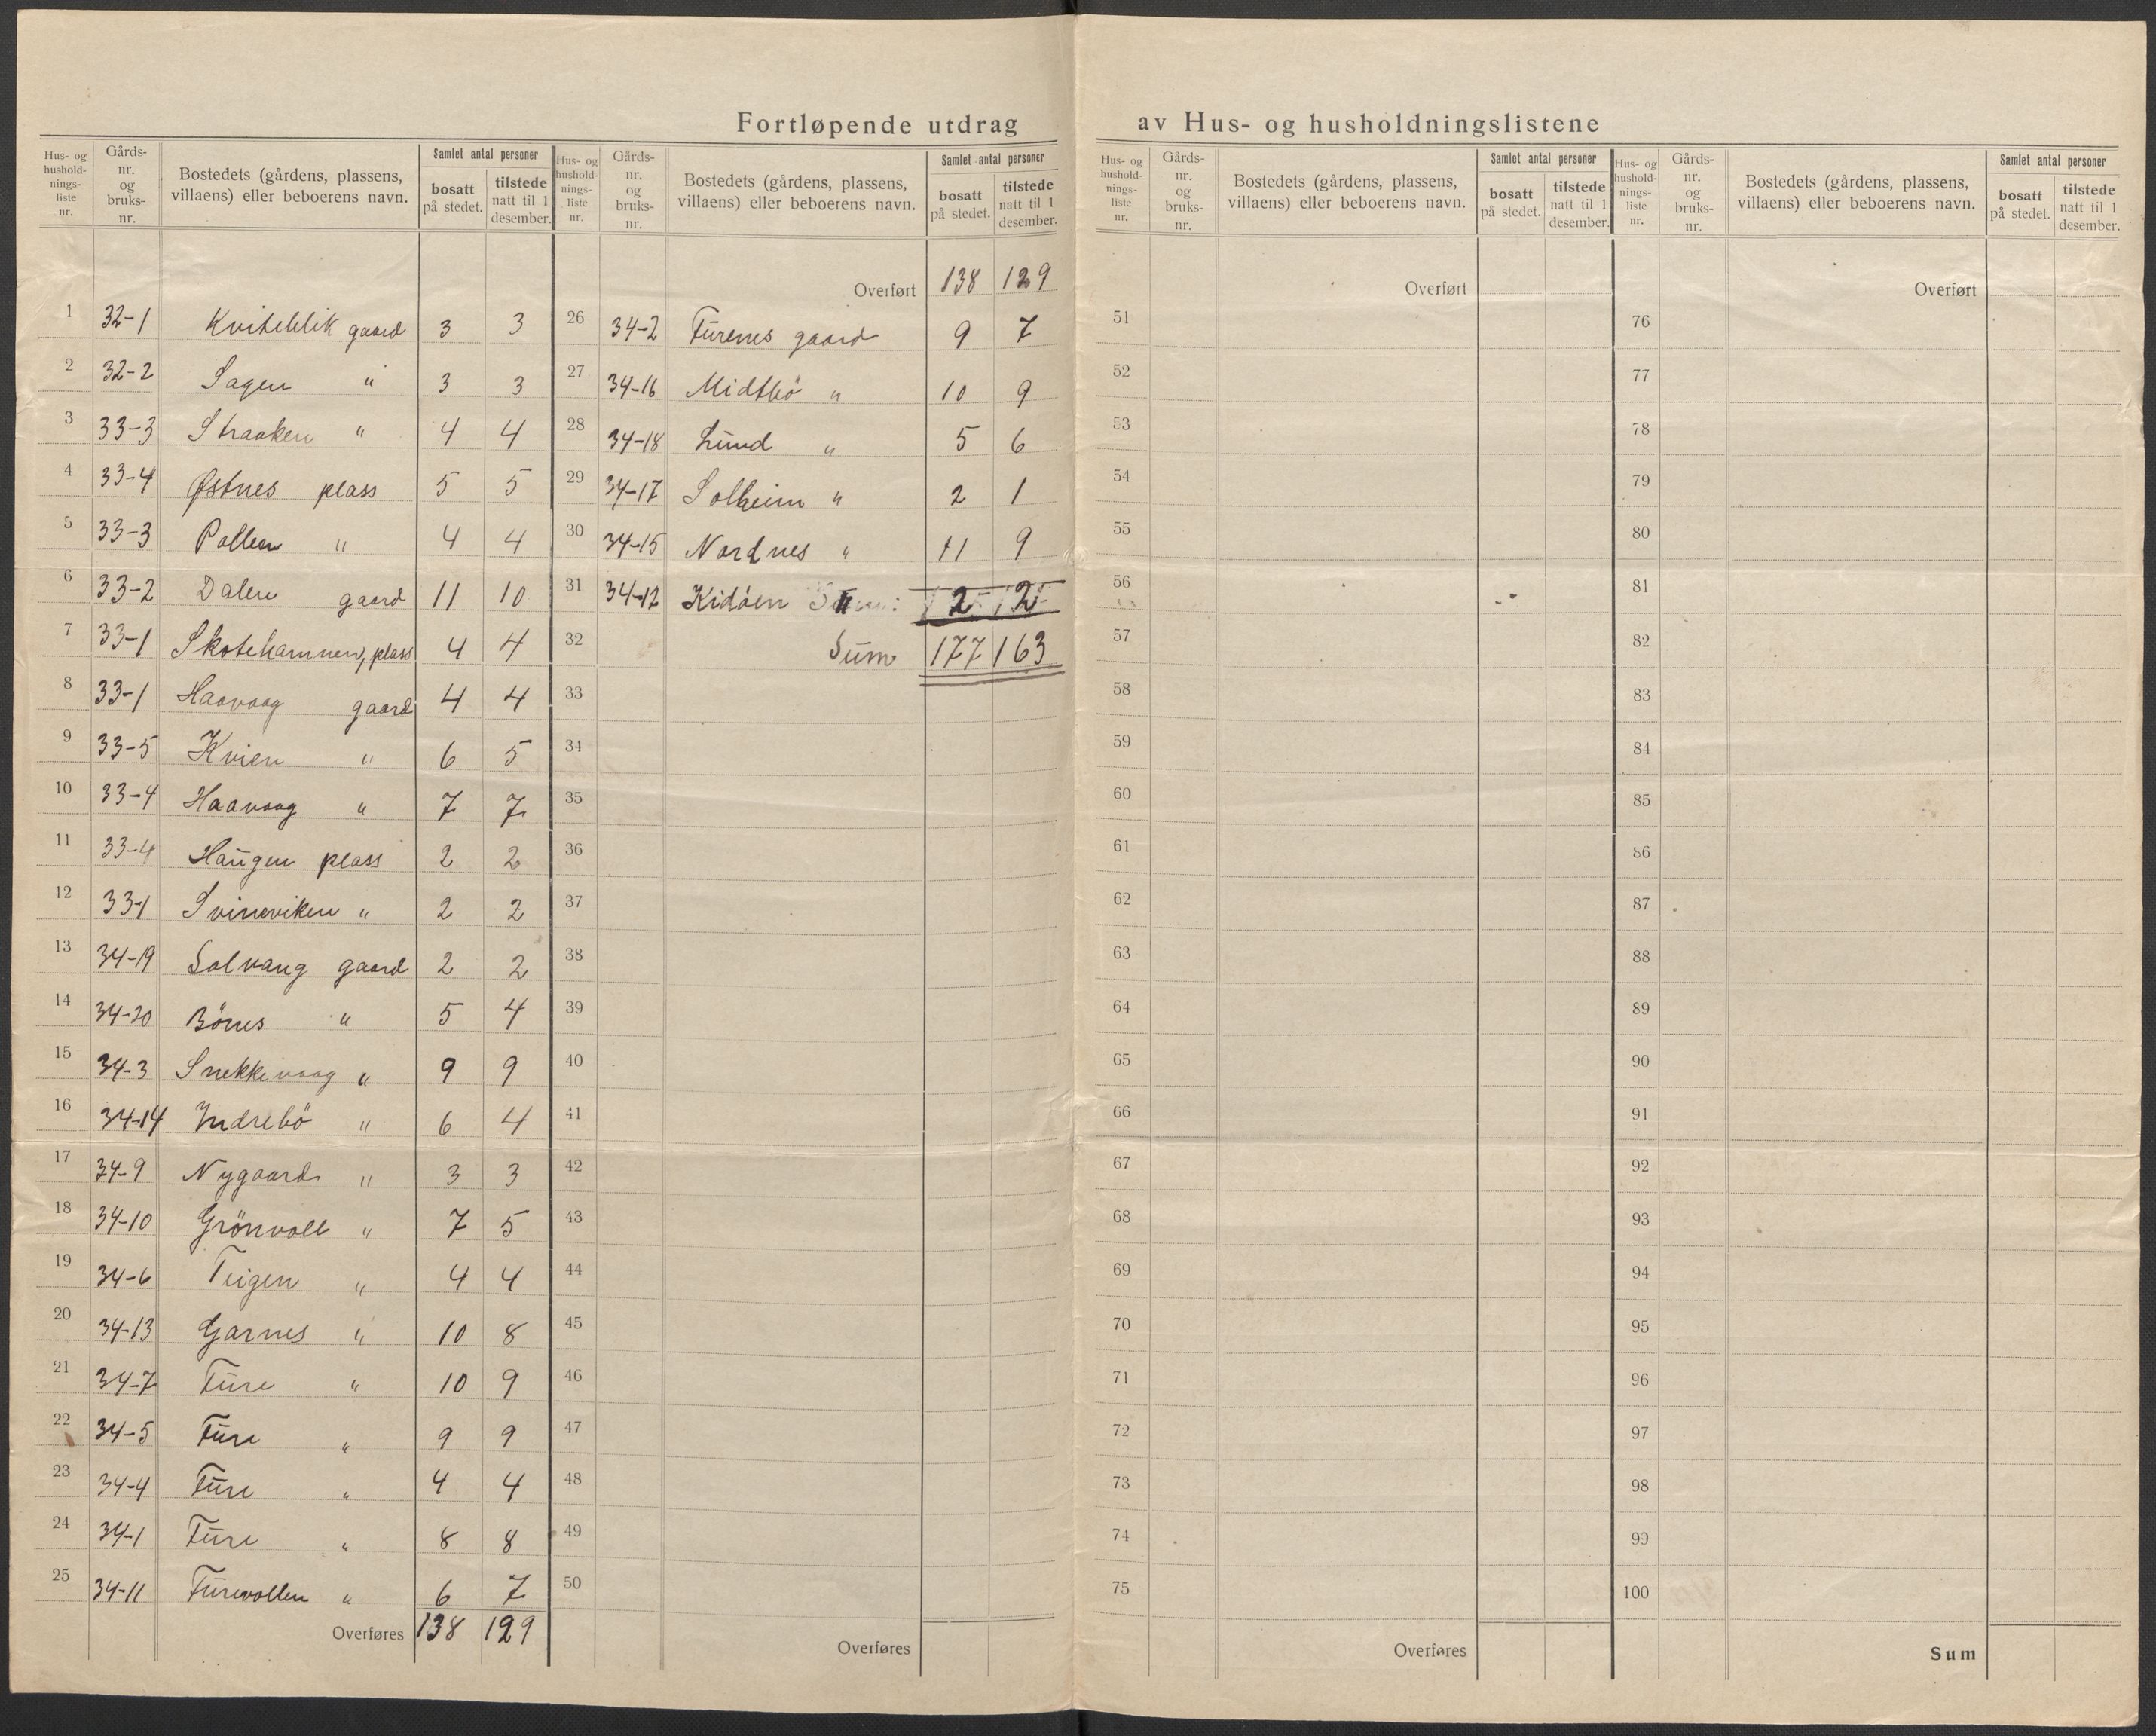 Fortløpende utdrag av Hus- og husholdningslistene
Hus- og husholdnings-liste nr. | Gårds-nr. og bruks-nr. | Bostedets (gårdens, plassens, villaens) eller beboerens navn. | Samlet antal personer | bosatt på stedet. | tilstede natt til 1 desember.
1 32-1 Kviteblik gaard 3 3
2 32-2 Sagen " 3 3
3 33-3 Straaken " 4 4
4 33-4 Østnes plass 5 5
5 33-3 Pollen " 4 4
6 33-2 Dalen gaard 11 10
7 33-1 Skotehamnen, plass 4 4
8 33-1 Haavaag gaard 4 4
9 33-5 Kvien " 6 5
10 33-4 Haavaag " 7 7
11 33-4 Haugen plass 2 2
12 33-1 Svineviken " 2 2
13 34-19 Solvang gaard 2 2
14 34-20 Bönes " 5 4
15 34-3 Snekkevaag " 9 9
16 34-14 Indrebö " 6 4
17 34-9 Nygaard " 3 3
18 34-10 Grönvoll " 7 5
19 34-6 Teigen " 4 4
20 34-13 Garnes " 10 8
21 34-7 Fure " 10 9
22 34-5 Fure " 9 9
23 34-4 Fure " 4 4
24 34-1 Fure " 8 8
25 34-11 Furevollen " 6 7
Overføres 138 129
Hus- og husholdnings-liste nr. | Gårds-nr. og bruks-nr. | Bostedets (gårdens, plassens, villaens) eller beboerens navn. | Samlet antal personer | bosatt på stedet. | tilstede natt til 1 desember.
Overført 138 129
26 34-2 Furenes gaard 9 7
27 34-16 Midtbö " 10 9
28 34-18 Lund " 5 6
29 34-17 Solheim " 2 1
30 34-15 Nordnes " 11 9
31 34-12 Kidöen " 2 2
32 Sum 177 163
33
34
35
36
37
38
39
40
41
42
43
44
45
46
47
48
49
50
Overføres
Hus- og husholdnings-liste nr. | Gårds-nr. og bruks-nr. | Bostedets (gårdens, plassens, villaens) eller beboerens navn. | Samlet antal personer | bosatt på stedet. | tilstede natt til 1 desember.
Overført
51
52
53
54
55
56
57
58
59
60
61
62
63
64
65
66
67
68
69
70
71
72
73
74
75
Overføres
Hus- og husholdnings-liste nr. | Gårds-nr. og bruks-nr. | Bostedets (gårdens, plassens, villaens) eller beboerens navn. | Samlet antal personer | bosatt på stedet. | tilstede natt til 1 desember.
Overført
76
77
78
79
80
81
82
83
84
85
86
87
88
89
90
91
92
93
94
95
96
97
98
99
100
Sum